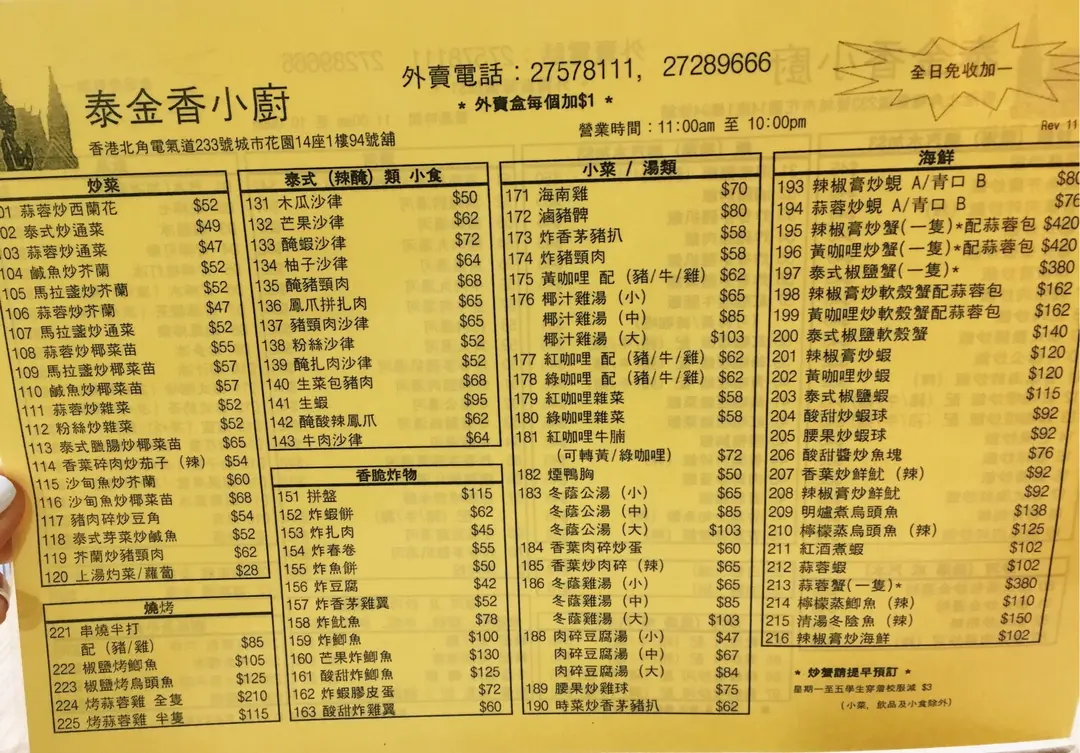 泰金香小廚
香港北角電氣道233號城市花園14座1樓94號舖
外賣電話：27578111, 27289666
* 外賣盒每個加$1 *
營業時間：11:00am 至 10:00pm
全日免收加一
Rev 11
炒菜
01 蒜蓉炒西蘭花 $52
02 泰式炒通菜 $49
03 蒜蓉炒通菜 $47
104 鹹魚炒芥蘭 $52
105 馬拉盞炒芥蘭 $52
106 蒜蓉炒芥蘭 $47
107 馬拉盞炒通菜 $52
108 蒜蓉炒椰菜苗 $55
109 馬拉盞炒椰菜苗 $57
110 鹹魚炒椰菜苗 $57
111 蒜蓉炒雜菜 $52
112 粉絲炒雜菜 $52
113 泰式臘腸炒椰菜苗 $65
114 香葉碎肉炒茄子（辣） $54
115 沙甸魚炒芥蘭 $60
116 沙甸魚炒椰菜苗 $68
117 豬肉碎炒豆角 $54
118 泰式芽菜炒鹹魚 $52
119 芥蘭炒豬頸肉 $62
120 上湯灼菜/蘿蔔 $28
燒烤
221 串燒半打
配（豬/雞） $85
222 椒鹽烤鯽魚 $105
223 椒鹽烤烏頭魚 $125
224 烤蒜蓉雞 全隻 $210
225 烤蒜蓉雞 半隻 $115
泰式（辣醃）類 小食
131 木瓜沙律 $50
132 芒果沙律 $62
133 醃蝦沙律 $72
134 柚子沙律 $64
135 醃豬頸肉 $68
136 鳳爪拼扎肉 $65
137 豬頸肉沙律 $65
138 粉絲沙律 $52
139 醃扎肉沙律 $52
140 生菜包豬肉 $68
141 生蝦 $95
142 醃酸辣鳳爪 $62
143 牛肉沙律 $64
香脆炸物
151 拼盤 $115
152 炸蝦餅 $62
153 炸扎肉 $45
154 炸春卷 $55
155 炸魚餅 $50
156 炸豆腐 $42
157 炸香茅雞翼 $52
158 炸魷魚 $78
159 炸鯽魚 $100
160 芒果炸鯽魚 $130
161 酸甜炸鯽魚 $125
162 炸蝦膠皮蛋 $72
163 酸甜炸雞翼 $60
小菜 / 湯類
171 海南雞 $70
172 滷豬髀 $80
173 炸香茅豬扒 $58
174 炸豬頸肉 $58
175 黃咖哩 配（豬/牛/雞） $62
176 椰汁雞湯（小） $65
椰汁雞湯（中） $85
椰汁雞湯（大） $103
177 紅咖哩 配（豬/牛/雞） $62
178 綠咖哩 配（豬/牛/雞） $62
179 紅咖哩雜菜 $58
180 綠咖哩雜菜 $58
181 紅咖哩牛腩
（可轉黃/綠咖哩） $72
182 煙鴨胸 $50
183 冬蔭公湯（小） $65
冬蔭公湯（中） $85
冬蔭公湯（大） $103
184 香葉肉碎炒蛋 $60
185 香葉炒肉碎（辣） $65
186 冬蔭雞湯（小） $65
冬蔭雞湯（中） $85
冬蔭雞湯（大） $103
188 肉碎豆腐湯（小） $47
肉碎豆腐湯（中） $67
肉碎豆腐湯（大） $84
189 腰果炒雞球 $75
190 時菜炒香茅豬扒 $62
海鮮
193 辣椒膏炒蜆 A/青口 B $80
194 蒜蓉炒蜆 A/青口 B $76
195 辣椒膏炒蟹(一隻)*配蒜蓉包 $420
196 黃咖哩炒蟹(一隻)*配蒜蓉包 $420
197 泰式椒鹽蟹(一隻)* $380
198 辣椒膏炒軟殼蟹配蒜蓉包 $162
199 黃咖哩炒軟殼蟹配蒜蓉包 $162
200 泰式椒鹽軟殼蟹 $140
201 辣椒膏炒蝦 $120
202 黃咖哩炒蝦 $120
203 泰式椒鹽蝦 $115
204 酸甜炒蝦球 $92
205 腰果炒蝦球 $92
206 酸甜醬炒魚塊 $76
207 香葉炒鮮魷（辣） $92
208 辣椒膏炒鮮魷 $92
209 明爐煮烏頭魚 $138
210 檸檬蒸烏頭魚（辣） $125
211 紅酒煮蝦 $102
212 蒜蓉蝦 $102
213 蒜蓉蟹(一隻)* $380
214 檸檬蒸鯽魚（辣） $110
215 清湯冬陰魚（辣） $150
216 辣椒膏炒海鮮 $102
* 炒蟹請提早預訂 *
星期一至五學生穿着校服減 $3
（小菜, 飲品及小食除外）